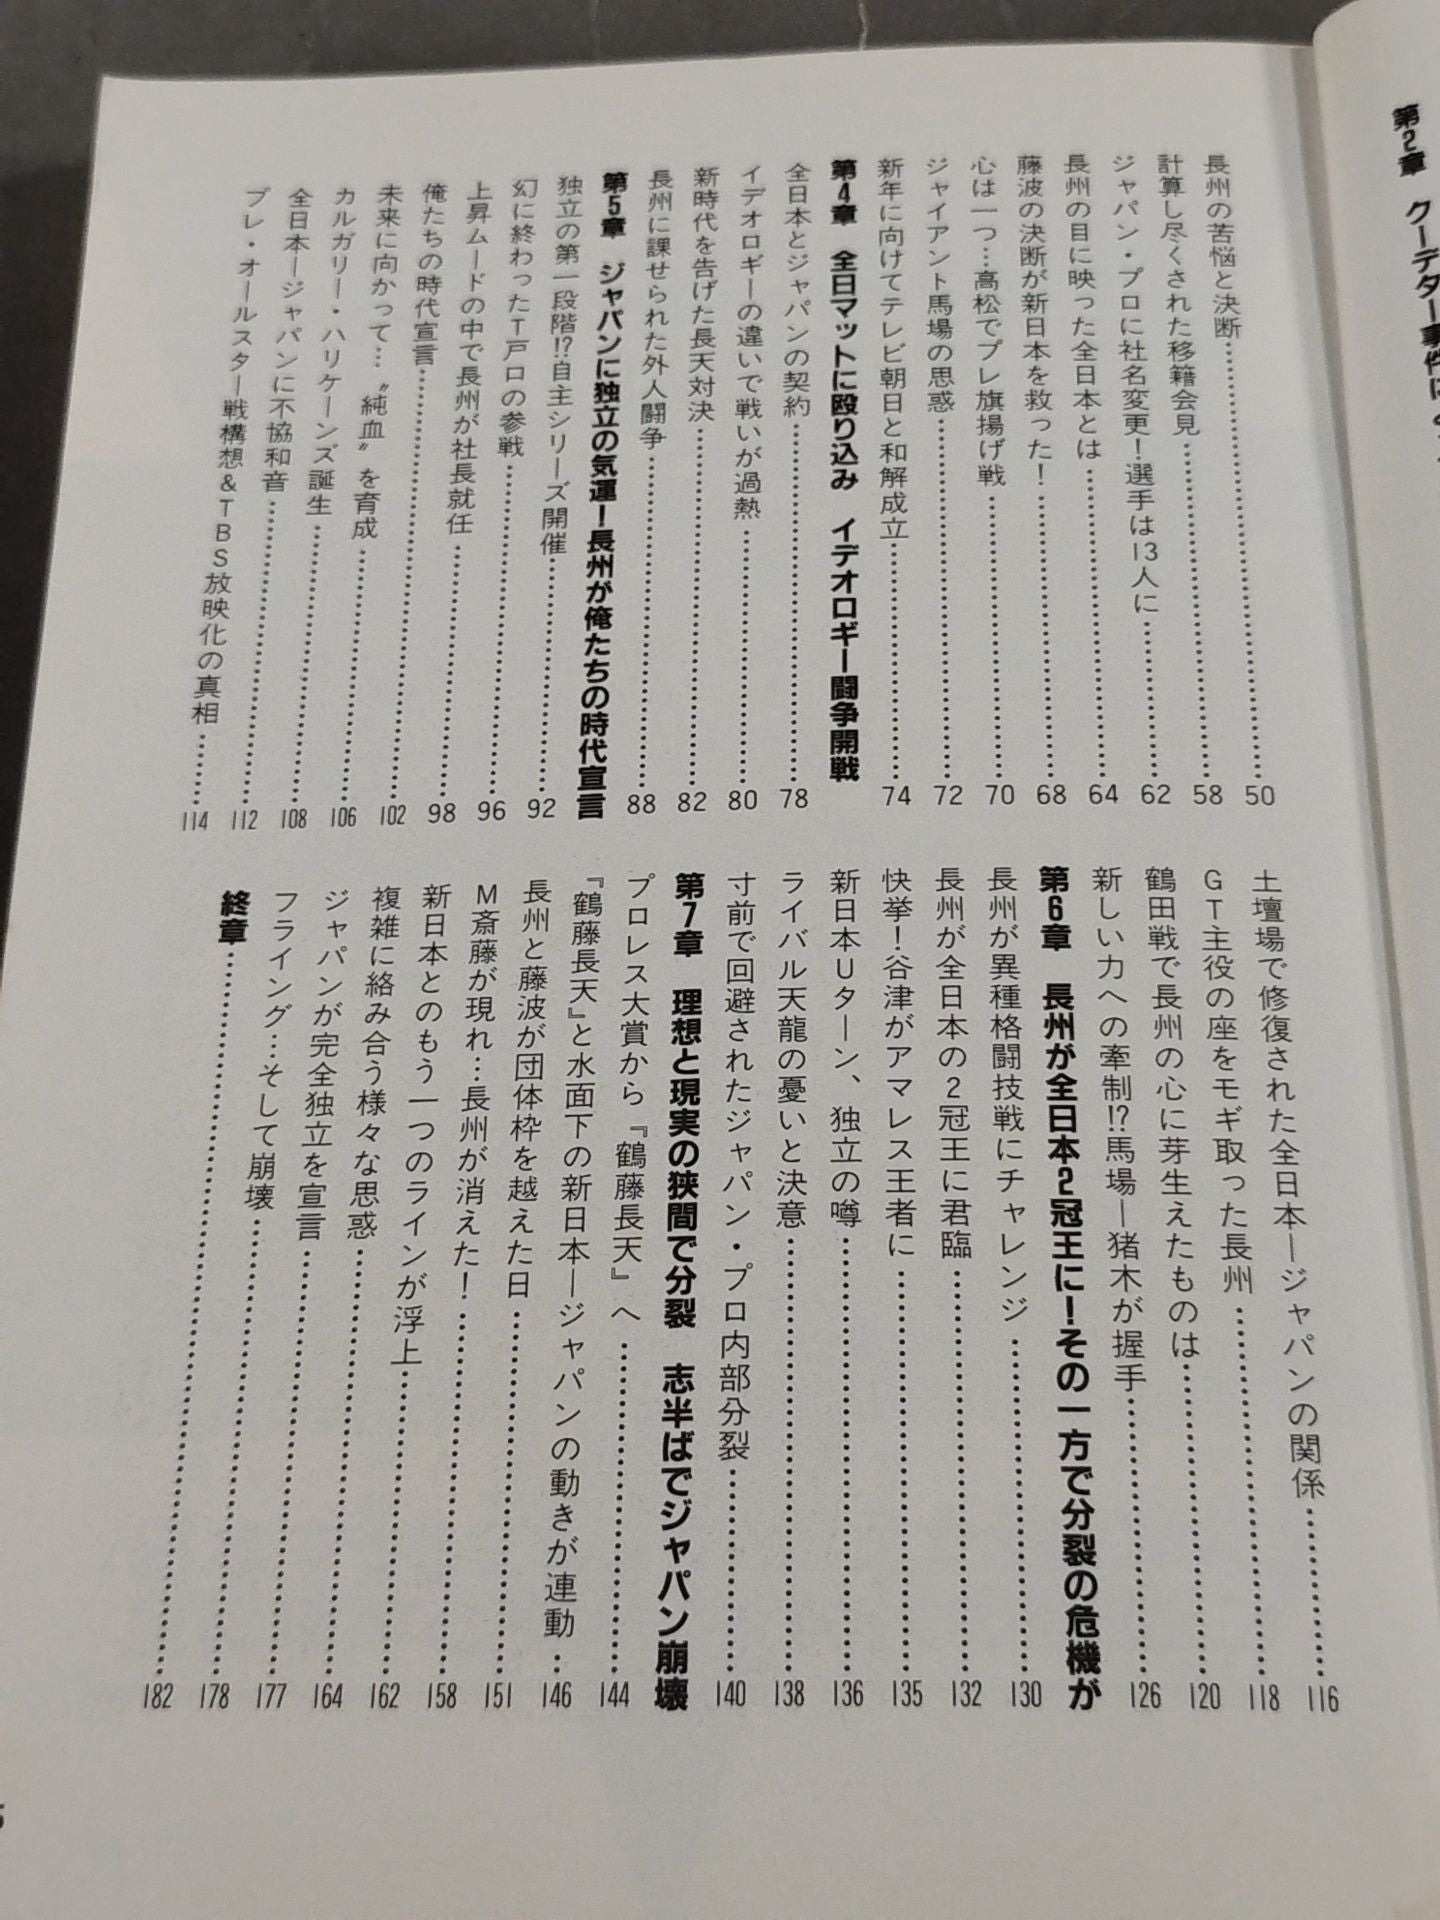 第2章 クーデター事件に
長州の苦悩と決断…………50
計算し尽くされた移籍会見…………58
ジャパン・プロに社名変更！選手は13人に…………62
長州の目に映った全日本とは…………64
藤波の決断が新日本を救った！…………68
心は一つ…高松でプレ旗揚げ戦…………70
ジャイアント馬場の思惑…………72
新年に向けてテレビ朝日と和解成立…………74
第4章 全日マットに殴り込み イデオロギー闘争開戦
全日本とジャパンの契約…………78
イデオロギーの違いで戦いが過熱…………80
新時代を告げた長天対決…………82
長州に課せられた外人闘争…………88
第5章 ジャパンに独立の気運！長州が俺たちの時代宣言
独立の第一段階!?自主シリーズ開催…………92
幻に終わったT戸口の参戦…………96
上昇ムードの中で長州が社長就任…………98
俺たちの時代宣言…………102
未来に向かって…〝純血〟を育成…………106
カルガリー・ハリケーンズ誕生…………108
全日本―ジャパンに不協和音…………112
プレ・オールスター戦構想&TBS放映化の真相…………114
土壇場で修復された全日本―ジャパンの関係…………116
GT主役の座をモギ取った長州…………118
鶴田戦で長州の心に芽生えたものは…………120
新しい力への牽制!?馬場―猪木が握手…………126
第6章 長州が全日本2冠王に！その一方で分裂の危機が
長州が異種格闘技戦にチャレンジ…………130
長州が全日本の2冠王に君臨…………132
快挙！谷津がアマレス王者に…………135
新日本Uターン、独立の噂…………136
ライバル天龍の憂いと決意…………138
寸前で回避されたジャパン・プロ内部分裂…………140
第7章 理想と現実の狭間で分裂 志半ばでジャパン崩壊
プロレス大賞から『鶴藤長天』へ…………144
『鶴藤長天』と水面下の新日本―ジャパンの動きが連動…146
長州と藤波が団体枠を越えた日…………151
M斎藤が現れ…長州が消えた！…………158
新日本とのもう一つのラインが浮上…………162
複雑に絡み合う様々な思惑…………164
ジャパンが完全独立を宣言…………177
フライング…そして崩壊…………178
終章…………182
5